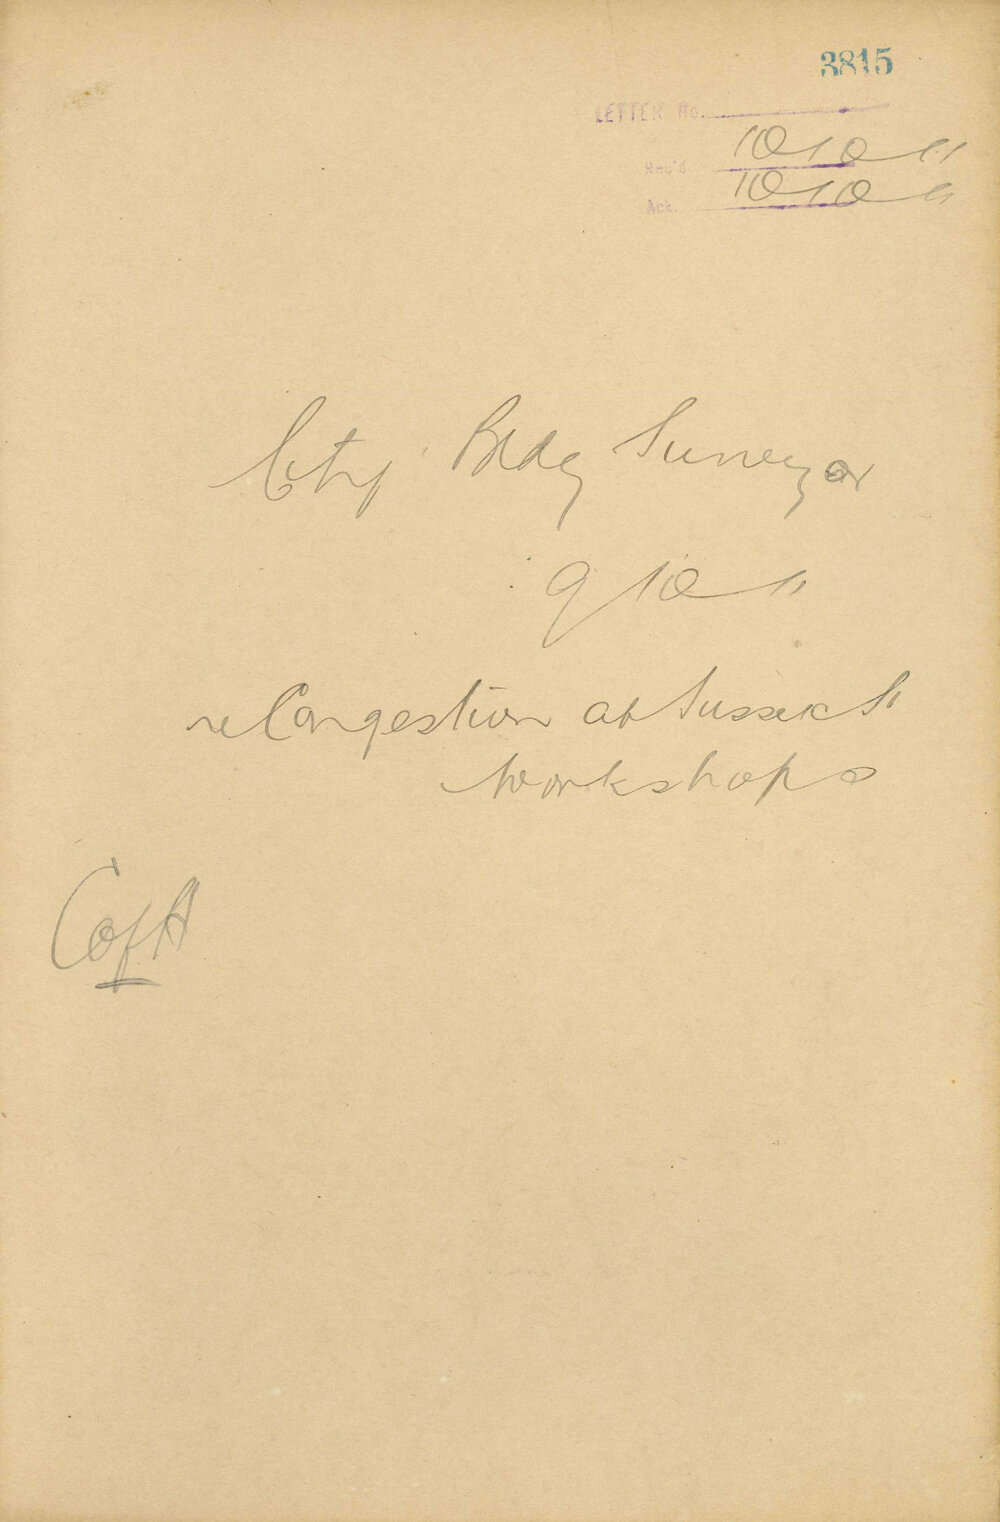 3815
LETTER No.
Rec'd 10/10/11
Ack 10/10/11
City Bldg Surveyor
9/10/11
re Congestion at Sussex St
Workshops
C of A